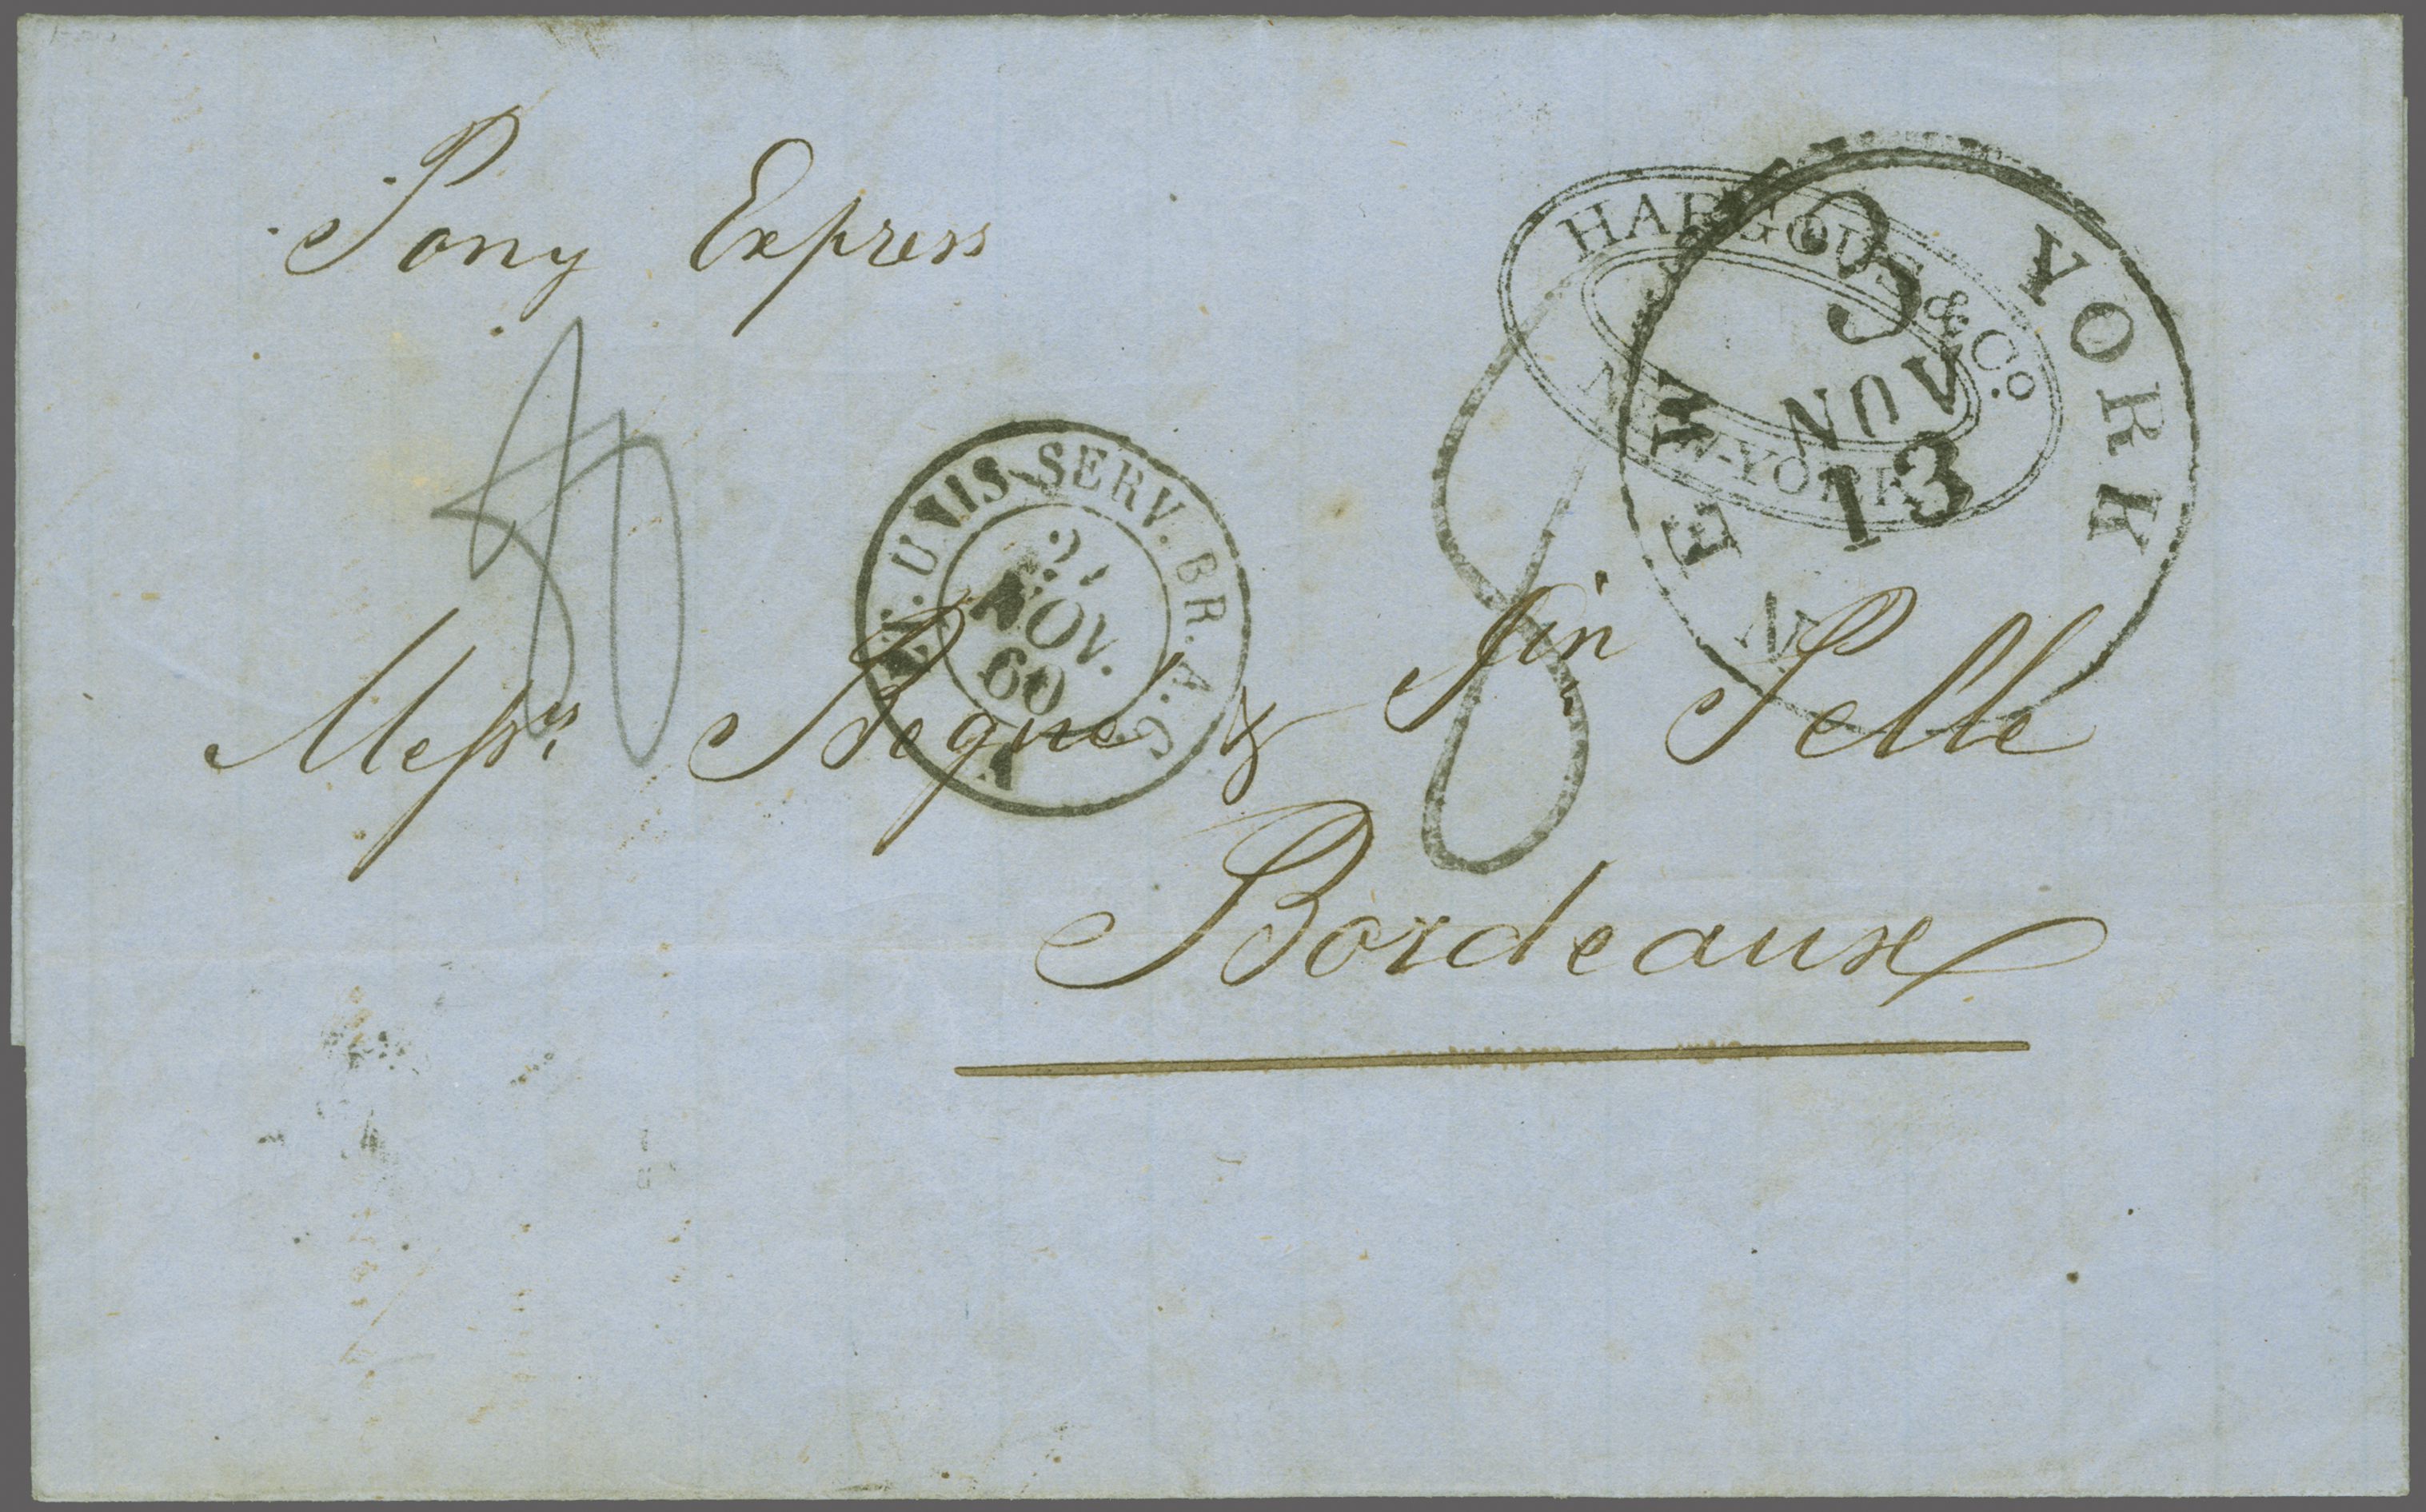 Pony Express
HARGOUS & Co.
NEW-YORK
NEW YORK
3
NOV
13
8
ET. UNIS-SERV. BR. A. C.
NOV.
60
Messrs Begué & Jin Pelle
Bordeaux